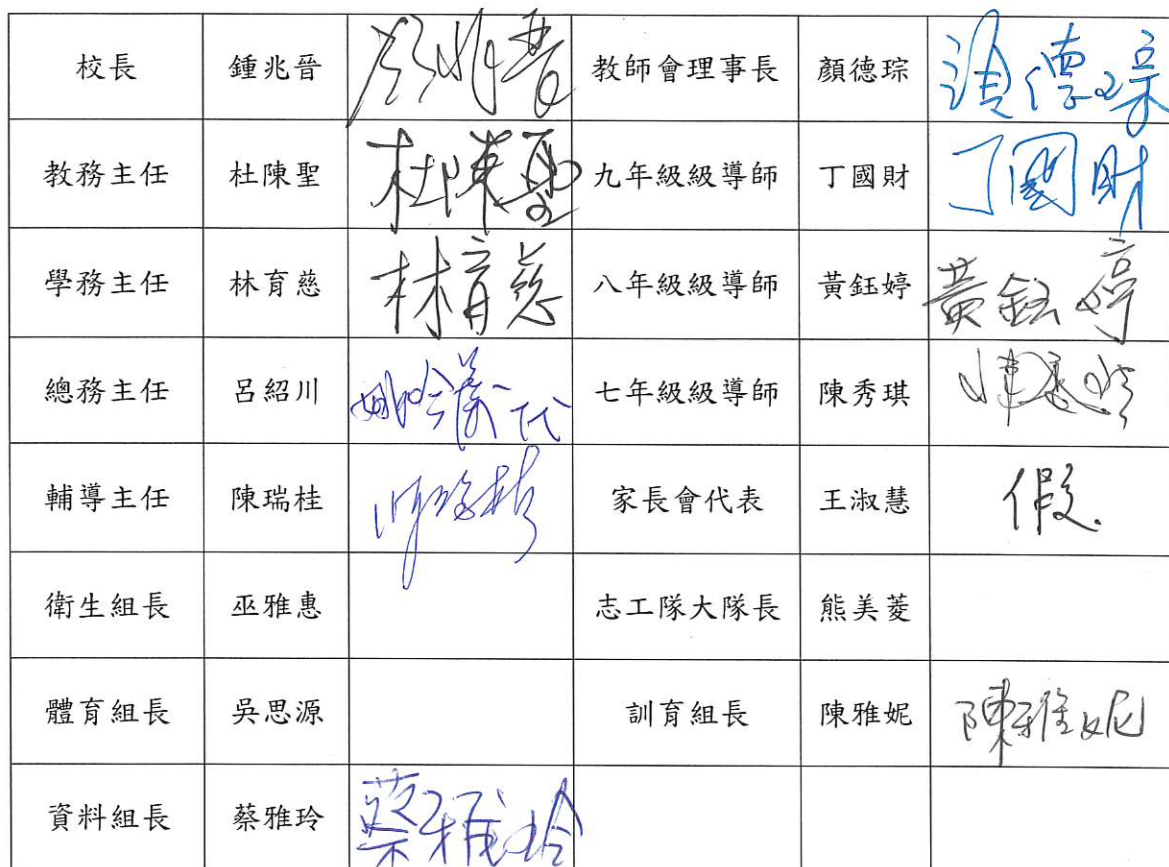 校長 鍾兆晉 鍾兆晉 教師會理事長 顏德琮 顏德琮
教務主任 杜陳聖 杜陳聖 九年級級導師 丁國財 丁國財
學務主任 林育慈 林育慈 八年級級導師 黃鈺婷 黃鈺婷
總務主任 呂紹川 代 七年級級導師 陳秀琪
輔導主任 陳瑞桂 陳瑞桂 家長會代表 王淑慧 假
衛生組長 巫雅惠 志工隊大隊長 熊美菱
體育組長 吳思源 訓育組長 陳雅妮 陳雅妮
資料組長 蔡雅玲 蔡雅玲